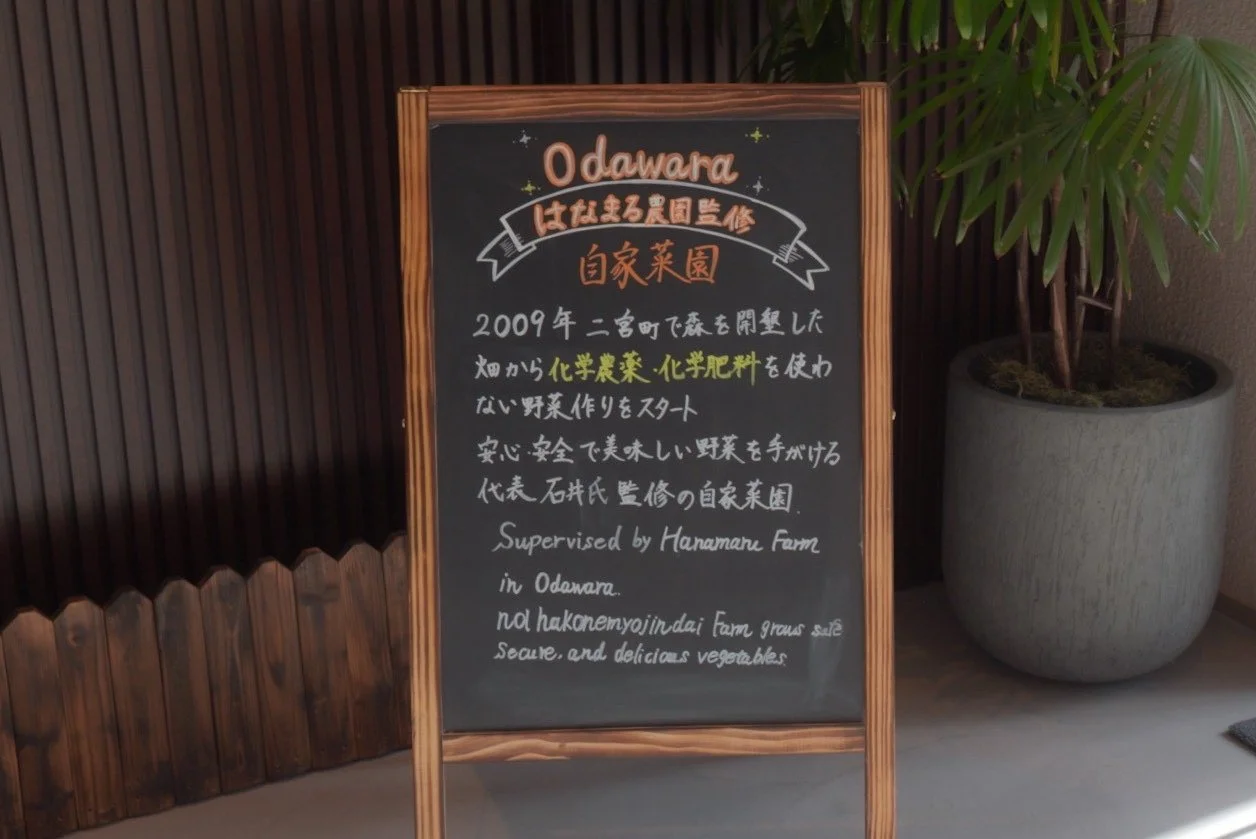 Odawara
はなまる農園監修
自家菜園
2009年 二宮町で森を開墾した
畑から化学農薬・化学肥料を使わ
ない野菜作りをスタート
安心・安全で美味しい野菜を手がける
代表 石井氏 監修の自家菜園.
Supervised by Hanamaru Farm
in Odawara.
nol hakonemyojindai Farm grows safe
secure, and delicious vegetables.